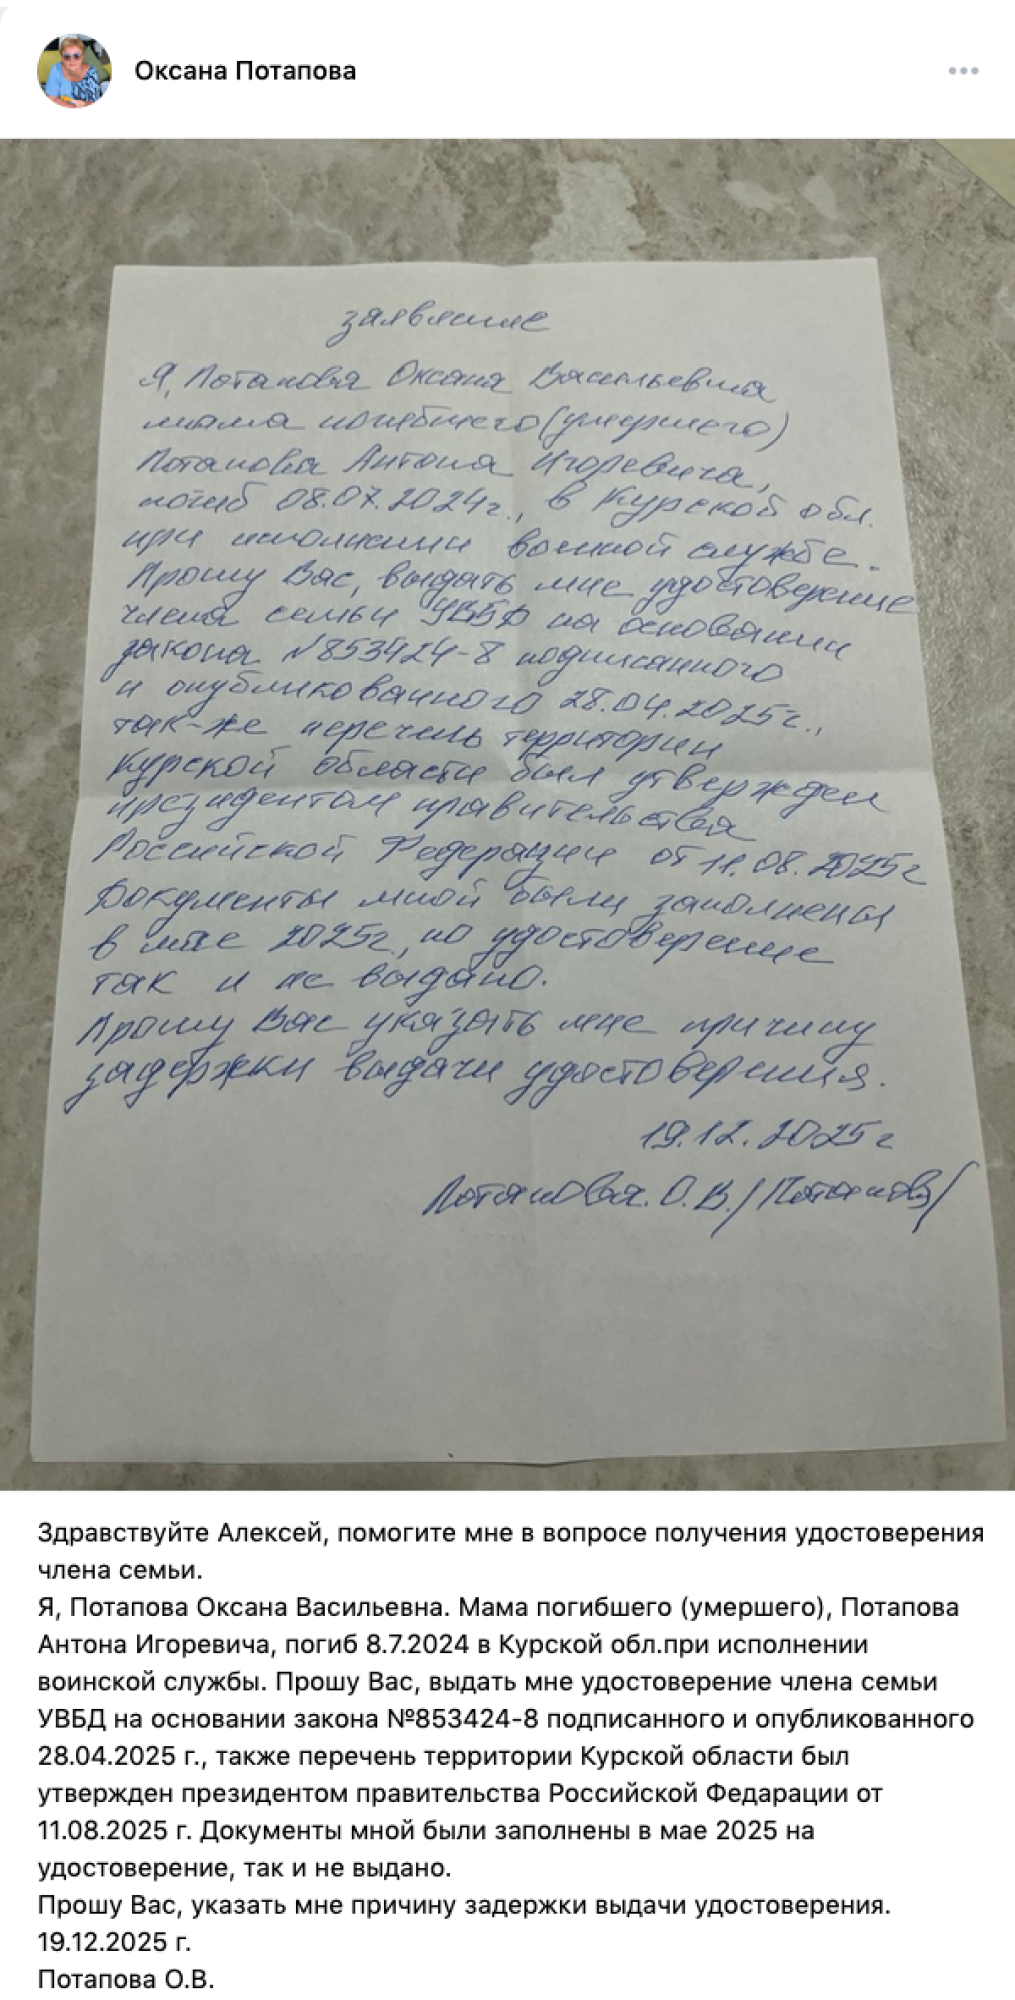 Оксана Потапова
заявление
Я, Потапова Оксана Васильевна
мама погибшего (умершего)
Потапова Антона Игоревича,
погиб 08.07.2024г., в Курской обл.
при исполнении военной службе.
Прошу Вас, выдать мне удостоверение
члена семьи УВБД на основании
закона №853424-8 подписанного
и опубликованного 28.04.2025г.,
так-же перечень территории
Курской области был утвержден
президентом правительства
Российской Федерации от 11.08.2025г
Документы мной были заполнены
в мае 2025г, но удостоверение
так и не выдано.
Прошу Вас указать мне причину
задержки выдачи удостоверения.
19.12.2025г
Потапова О.В. /Потапова/
Здравствуйте Алексей, помогите мне в вопросе получения удостоверения
члена семьи.
Я, Потапова Оксана Васильевна. Мама погибшего (умершего), Потапова
Антона Игоревича, погиб 8.7.2024 в Курской обл.при исполнении
воинской службы. Прошу Вас, выдать мне удостоверение члена семьи
УВБД на основании закона №853424-8 подписанного и опубликованного
28.04.2025 г., также перечень территории Курской области был
утвержден президентом правительства Российской Федарации от
11.08.2025 г. Документы мной были заполнены в мае 2025 на
удостоверение, так и не выдано.
Прошу Вас, указать мне причину задержки выдачи удостоверения.
19.12.2025 г.
Потапова О.В.